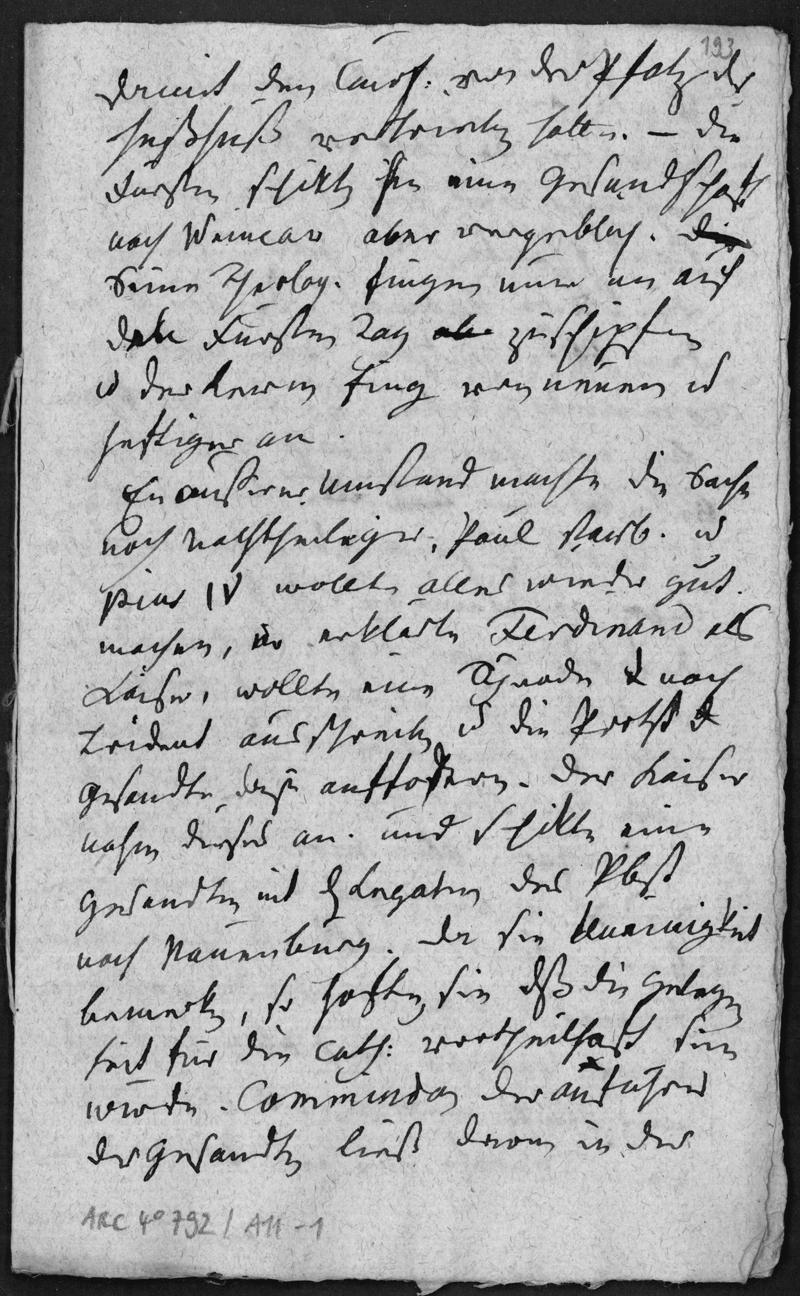 193
damit den Churf. von der Pfalz der
vertrieben hatte. — die
Fürsten schikten hin eine Gesandschaft
nach Weimar aber vergeblich. die
Seine Theolog. fingen nun an auf
den Fürsten Tag zu schipfen
u der Lerm fing von neuem u
heftiger an.
Ein äusserer Umstand machte die Sache
noch nachtheiliger, Paul starb. u
Pius IV wollte alles wieder gut
machen, er erklärte Ferdinand als
Kaiser, wollte eine Synode nach
Trident ausschreiben u die Protst
Gesandte dazu auffodern. Der Kaiser
nahm dieses an. und schikte eine
Gesandten mit Legaten des Pbst
nach Naumburg. Da sie Uneinigkeit
bemerkten, so hofften sie dß die Gelegen
heit für die Cath: vortheilhaft sein
würde. Commendon der anführer
der Gesandten ließ darum in der
ARC 4° 792 / A11 - 1